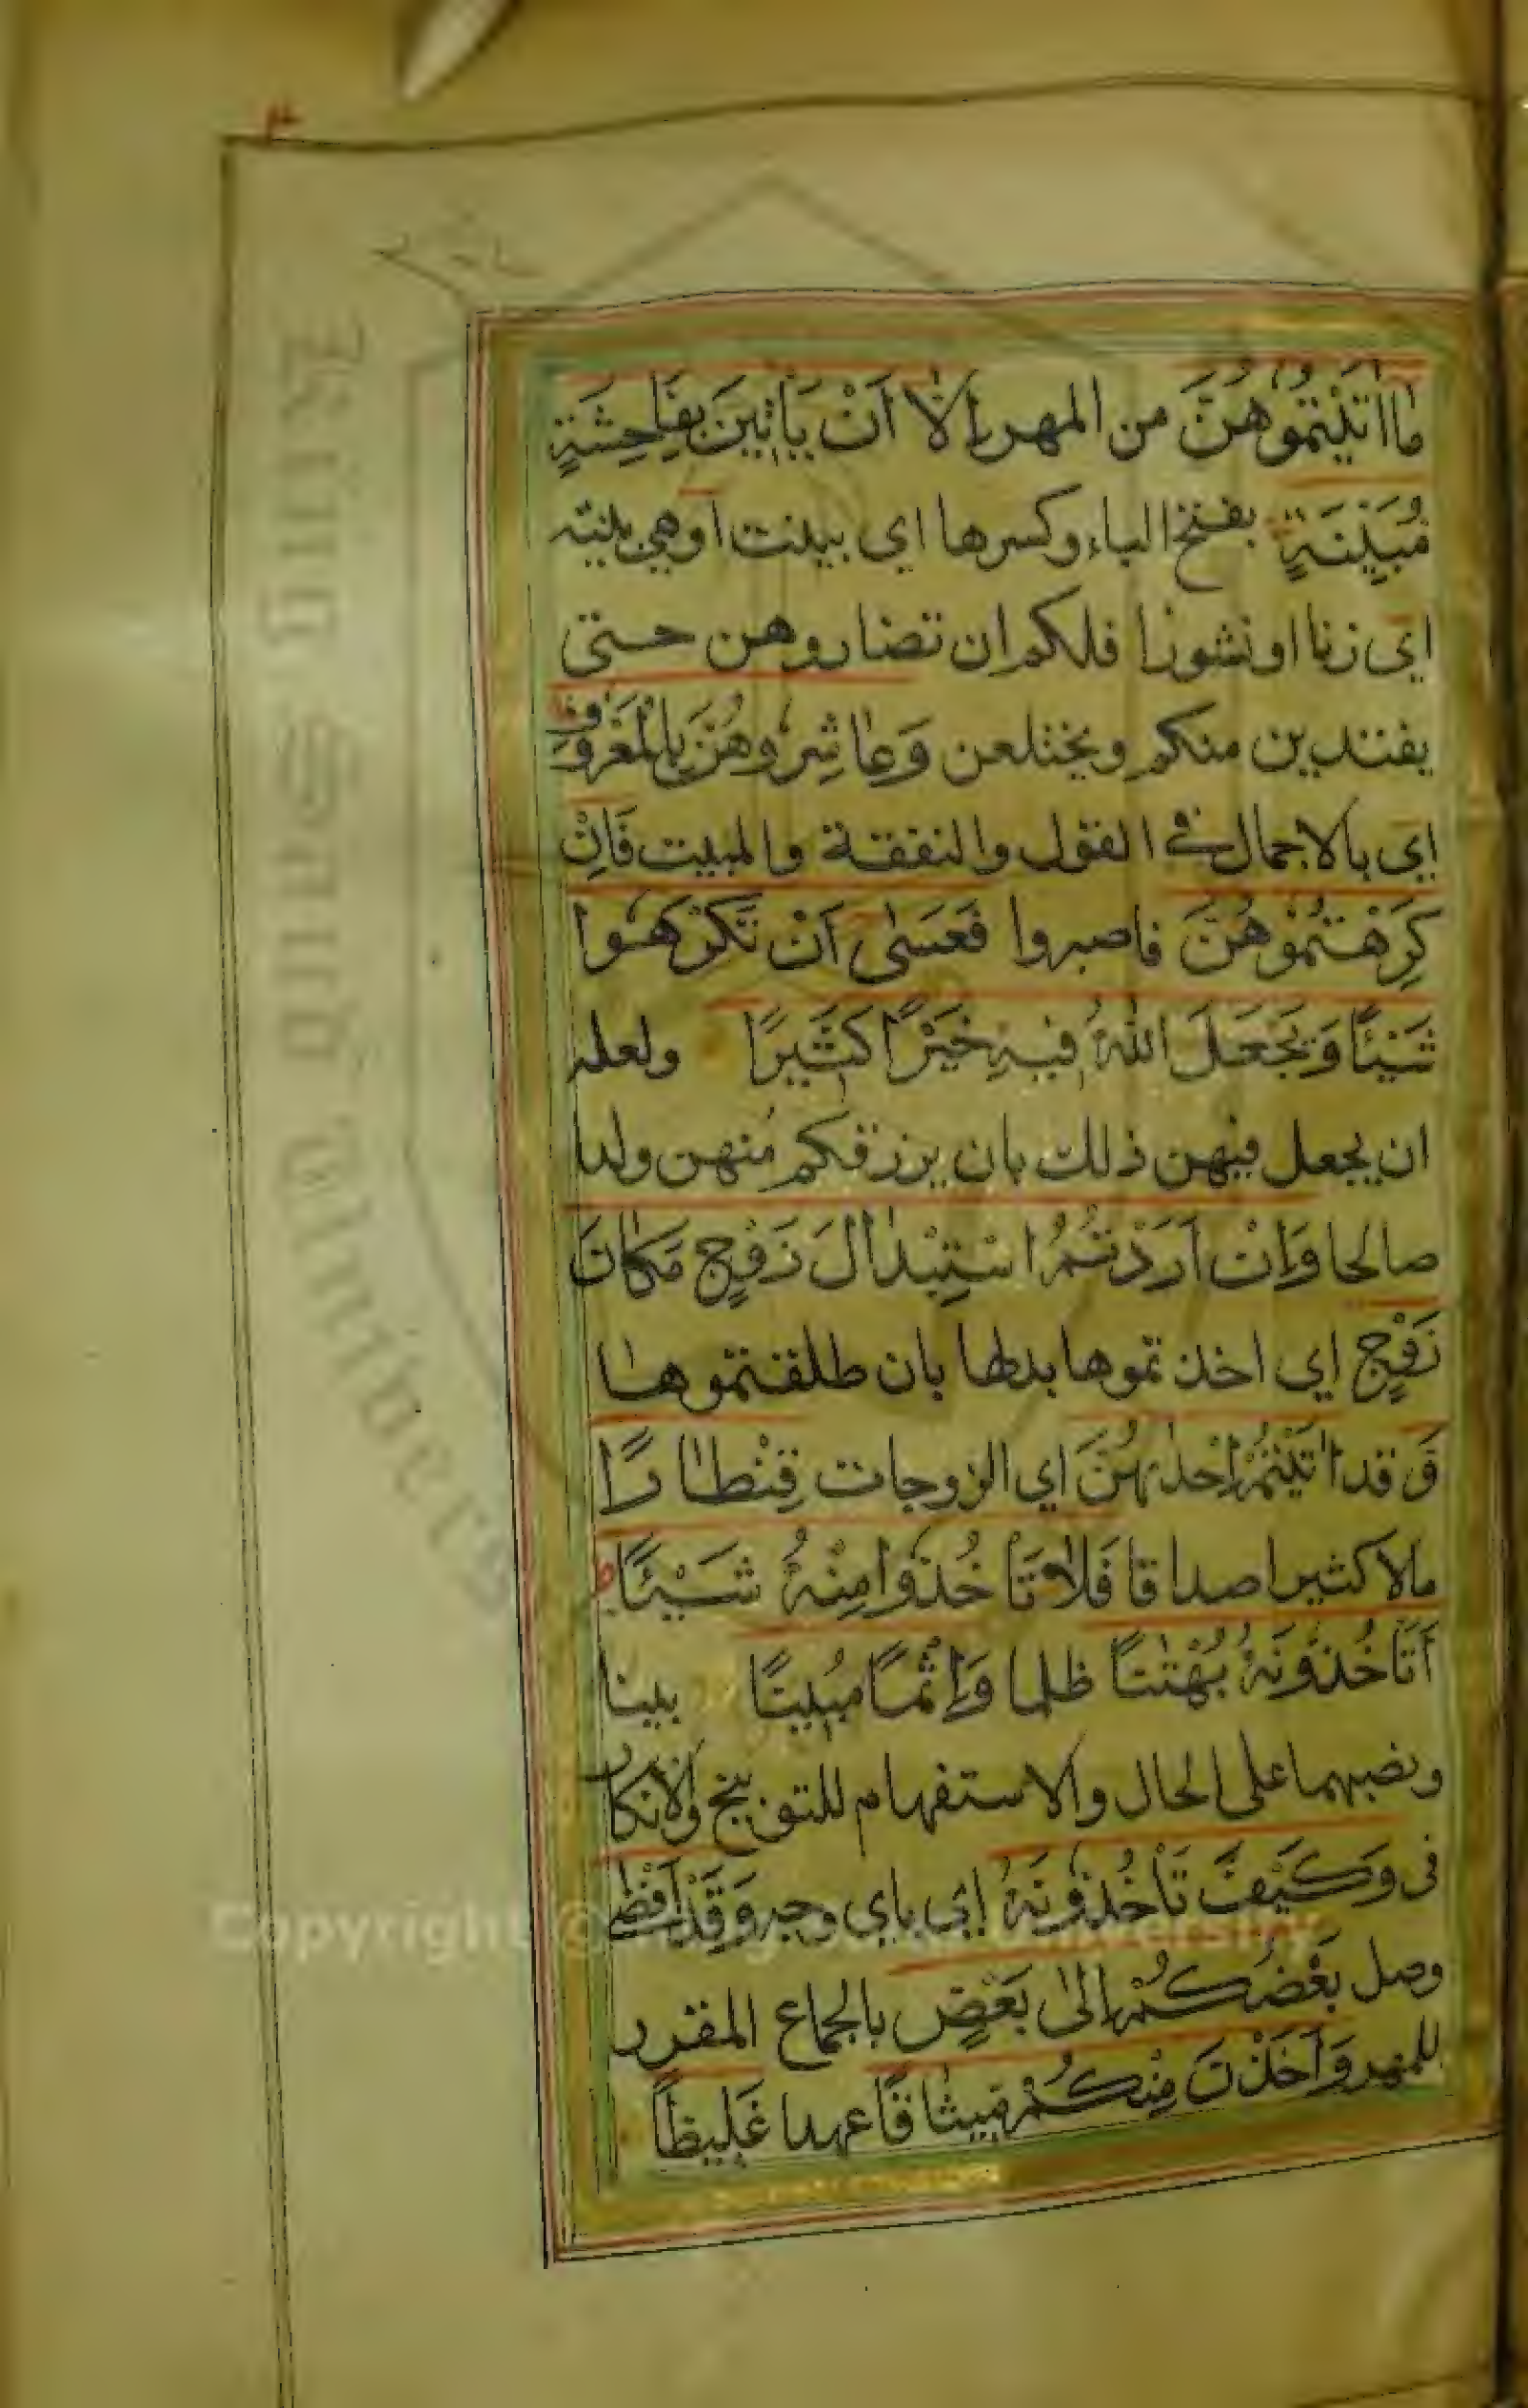 ٣
مَا اٰتَيْتُمُوْهُنَّ من المهر اِلَّا اَنْ يَأْتِيْنَ بِفَاحِشَةٍ
مُبَيِّنَةٍ بفتح الياء وكسرها اي بينت او هي بينة
اي زنا او نشوزا فلكم ان تضاروهن حتى
يفتدين منكم ويختلعن وَعَاشِرُوْهُنَّ بِالْمَعْرُوْفِ
اي بالاجمال في القول والنفقة والمبيت فَاِنْ
كَرِهْتُمُوْهُنَّ فاصبروا فَعَسٰى اَنْ تَكْرَهُوْا
شَيْئًا وَيَجْعَلَ اللّٰهُ فِيْهِ خَيْرًا كَثِيْرًا ولعله
ان يجعل فيهن ذلك بان يرزقكم منهن ولدا
صالحا وَاِنْ اَرَدْتُمُ اسْتِبْدَالَ زَوْجٍ مَكَانَ
زَوْجٍ اي اخذتموها بدلها بان طلقتموها
وَ قد اٰتَيْتُمْ اِحْدٰىهُنَّ اي الزوجات قِنْطَارًا
مالا كثيرا صداقا فَلَا تَأْخُذُوْا مِنْهُ شَيْئًا ط
اَتَأْخُذُوْنَهُ بُهْتٰنًا ظلما وَاِثْمًا مُبِيْنًا بينا
ونصبهما على الحال والاستفهام للتوبيخ والانكار
فى وَكَيْفَ تَأْخُذُوْنَهُ اي باي وجه وَقَدْ اَفْضٰى
وصل بَعْضُكُمْ اِلٰى بَعْضٍ بالجماع المقرر
للمهر وَاَخَذْنَ مِنْكُمْ مِيْثَاقًا عهدا غَلِيْظًا
Copyright © King Saud University